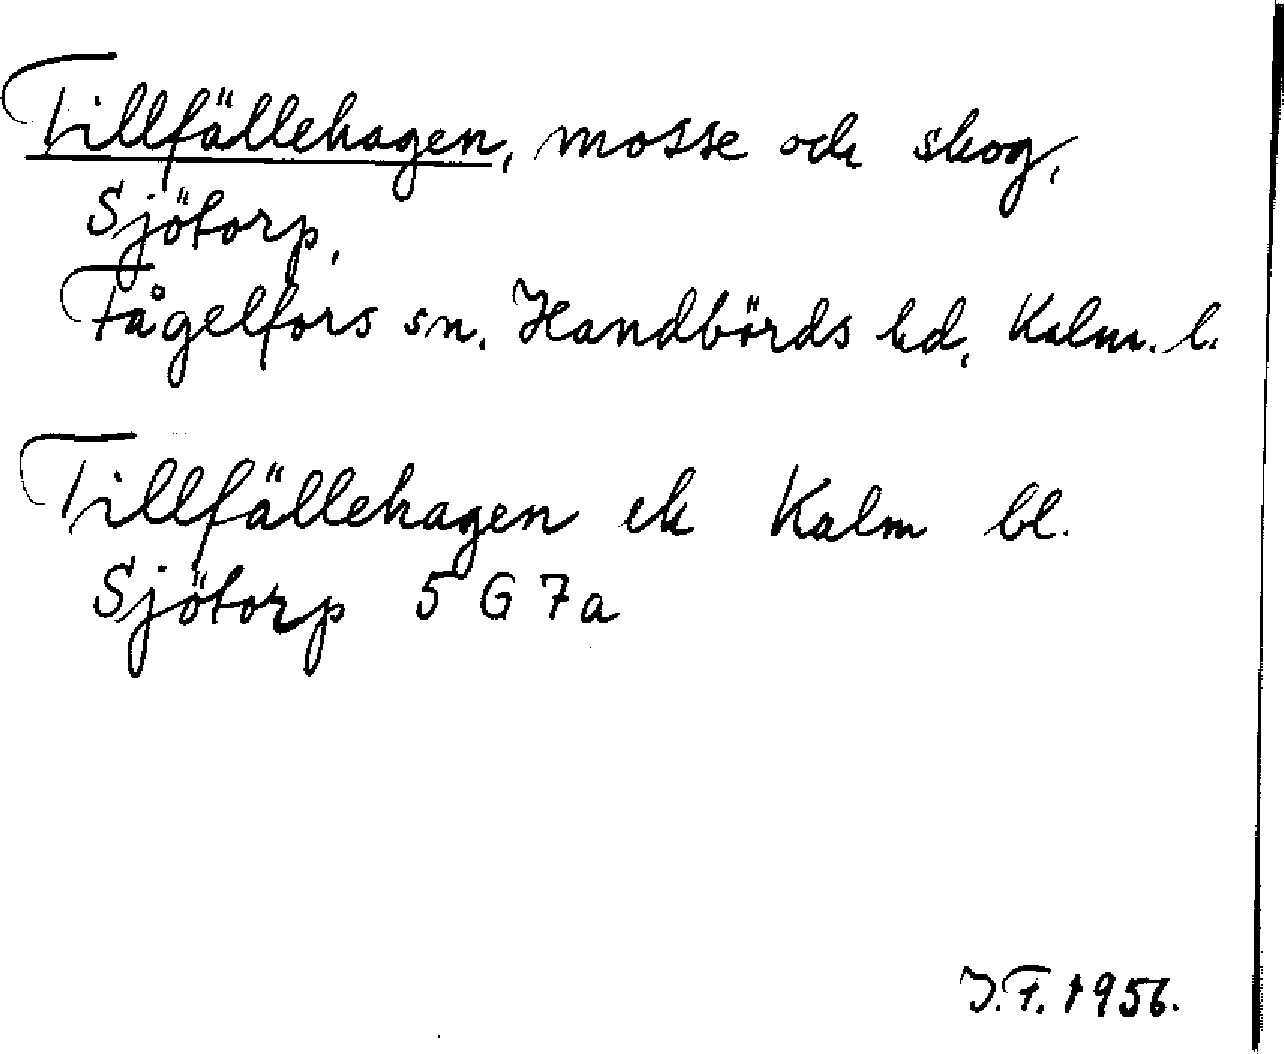 Tillfällehagen, mosse och skog,
Sjötorp,
Fågelfors sn. Handbörds hd, Kalm. l.
Tillfällehagen ek Kalm bl.
Sjötorp 5 G 7a
J.F. 1956.